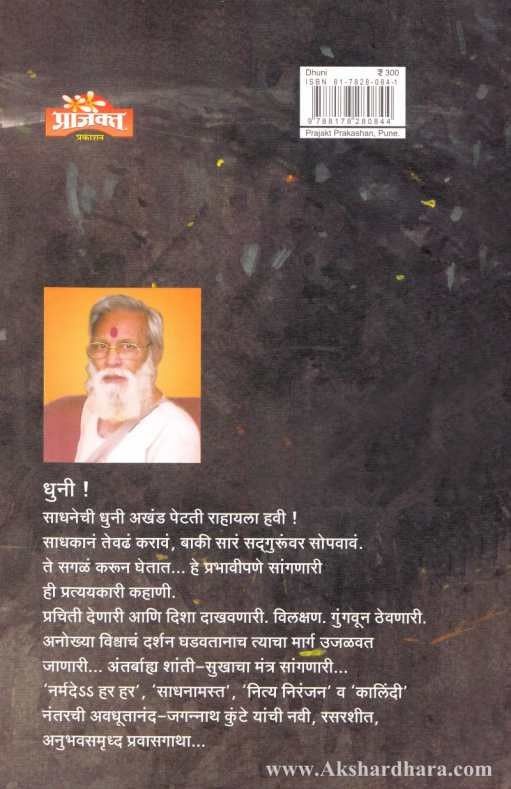 Dhuni ₹ 300
ISBN 81-7828-084-1
9 788178 280844
Prajakt Prakashan, Pune.
प्राजक्त
प्रकाशन
धुनी !
साधनेची धुनी अखंड पेटती राहायला हवी !
साधकानं तेवढं करावं, बाकी सारं सद्‌गुरूंवर सोपवावं.
ते सगळं करून घेतात... हे प्रभावीपणे सांगणारी
ही प्रत्ययकारी कहाणी.
प्रचिती देणारी आणि दिशा दाखवणारी. विलक्षण. गुंगवून ठेवणारी.
अनोख्या विश्वाचं दर्शन घडवतानाच त्याचा मार्ग उजळवत
जाणारी... अंतर्बाह्य शांती-सुखाचा मंत्र सांगणारी...
‘नर्मदेऽऽ हर हर’, ‘साधनामस्त’, ‘नित्य निरंजन’ व ‘कालिंदी’
नंतरची अवधूतानंद-जगन्नाथ कुंटे यांची नवी, रसरशीत,
अनुभवसमृध्द प्रवासगाथा...
www.Akshardhara.com